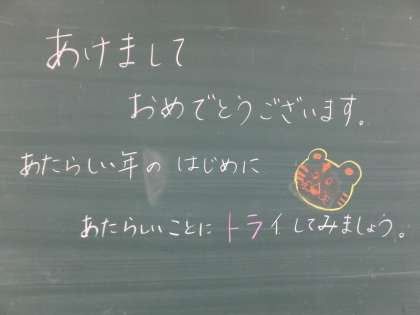 あけまして
おめでとうございます。
あたらしい年の はじめに
あたらしいことに トライしてみましょう。